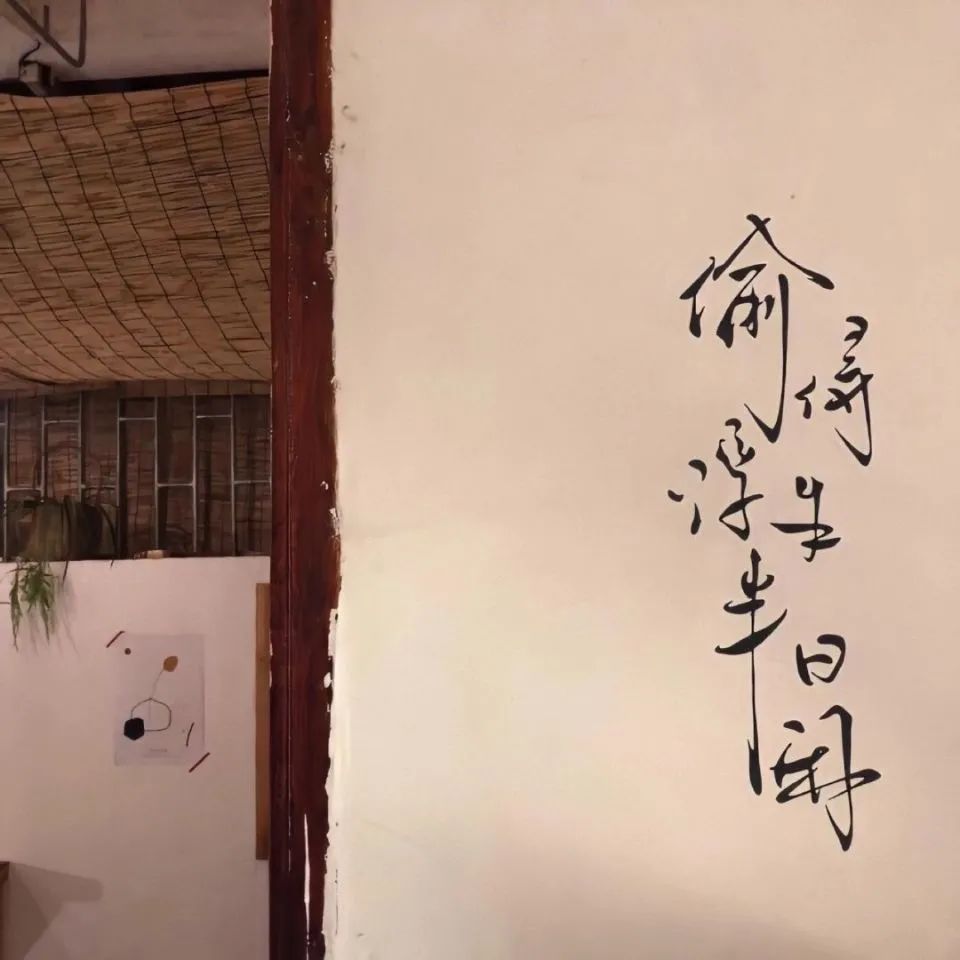 偷得浮生半日闲